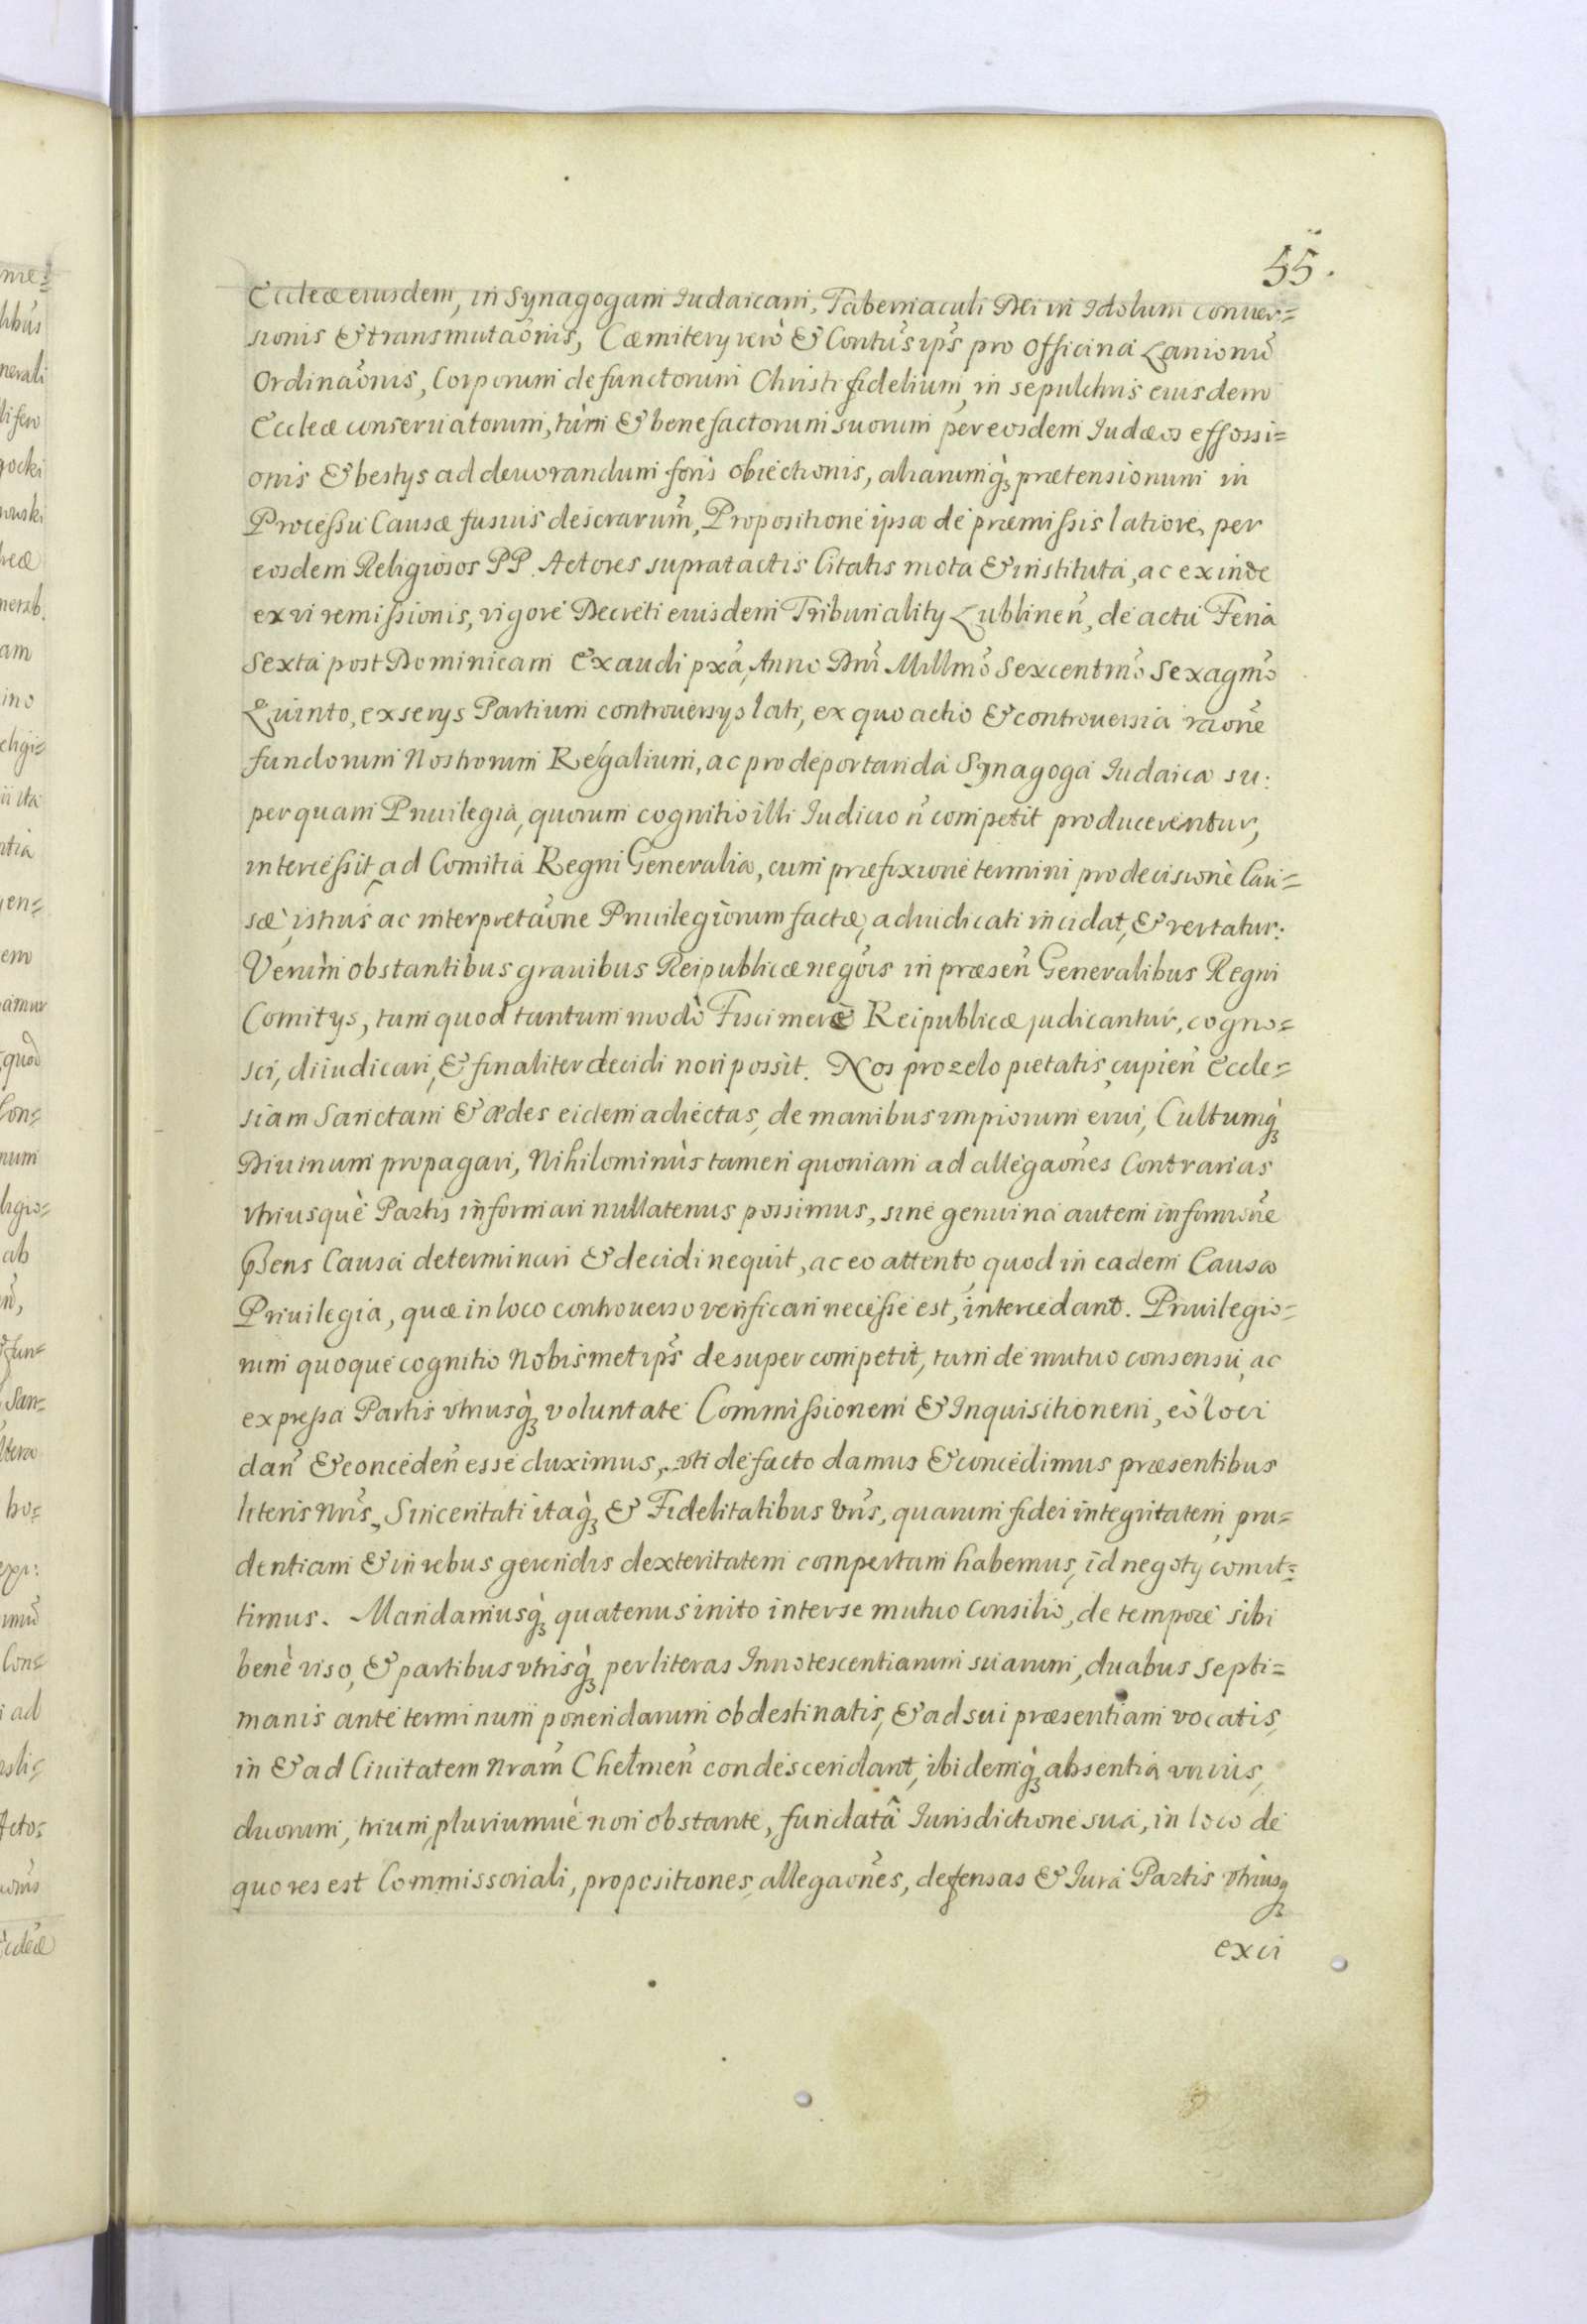 55.
Eccleæ eiusdem, in Synagogam Iudaicam, Tabernaculi Dei in Idolum conver=
sionis & transmutaõnis, Cæmitery verò & Contũs ips̃ pro officina Lanionũ
Ordinaõnis, Corporum defunctorum Christi fidelium, in sepulchris eiusdem
Eccleæ conservatorum, tùm & benefactorum suorum per eosdem Iudæos effossi=
onis & bestys ad devorandum foris obiectionis, aliarumq̀ꝫ prætensionum in
Processu Causæ fusius descrarum̃, Propositione ipsa de præmissis latiore, per
eosdem Religiosos PP. Actores supratactis Citatis mota & instituta, ac exinde
ex vi remissionis, vigore Decreti eiusdem Tribunality Lublineñ, de actu Feria
Sexta post Dominicam Exaudi pxã, Anno Dnĩ Millmõ Sexcentmõ Sexagmõ
Quinto, ex serys Partium controversys lati, ex quo actio & controversia raõne
fundorum Nostrorum Regalium, ac pro deportanda Synagoga Iudaica su:
per quam Privilegia, quorum cognitio illi Iudicio ñ competit producerentur,
intercessit, ad Comitia Regni Generalia, cum præfixione termini pro decisione Cau=
sæ istius ac interpretaõne Privilegiorum factæ, adiudicati incidat, & vertatur:
Verum obstantibus gravibus Reipublicæ negõis in præseñ Generalibus Regni
Comitys, tum quod tantum modò Fisci meræ Reipublicæ judicantur, cogno=
sci, diiudicari, & finaliter decidi non possit. Nos pro zelo pietatis cupieñ Eccle=
siam Sanctam & ædes eidem adiectas, de manibus impiorum erui, Cultumq̀ꝫ
Divinum propagari, Nihilominùs tamen quoniam ad allegaõnes Contrarias
vtriusquè Partis informari nullatenus possimus, sine genuina autem informõne
p̃sens Causa determinari & decidi nequit, ac eo attento quod in eadem Causa
Privilegia, quæ in loco controverso verificari necesse est, intercedant. Privilegio=
rum quoque cognitio Nobismet ips̃ desuper competit, tum de mutuo consensu, ac
expressa Partis vtriusq̀ꝫ voluntate Commissionem & Inquisitionem, eò loci
dañ & concedeñ esse duximus, uti de facto damus & concedimus præsentibus
literis Nrĩs, Sinceritati itaq̀ꝫ & Fidelitatibus Vrĩs, quarum fidei integritatem, pru=
dentiam & in rebus gerendis dexteritatem compertam habemus, id negoty comit=
timus. Mandamusq̀ꝫ quatenus inito inter se mutuo Consilio, de tempore sibi
benè viso, & partibus vtrisq̀ꝫ per literas Innotescentiarum suarum, duabus Septi=
manis ante terminum ponendarum obdestinatis, & ad sui præsentiam vocatis,
in & ad Civitatem Nram̃ Chełmeñ condescendant, ibidemq̀ꝫ absentia unius,
duorum, trium, pluriumuè non obstante, fundatâ Iurisdictione sua, in loco de
quo res est Commissoriali, propositiones, allegaõnes, defensas & Iura Partis vtriusqꝫ
exci